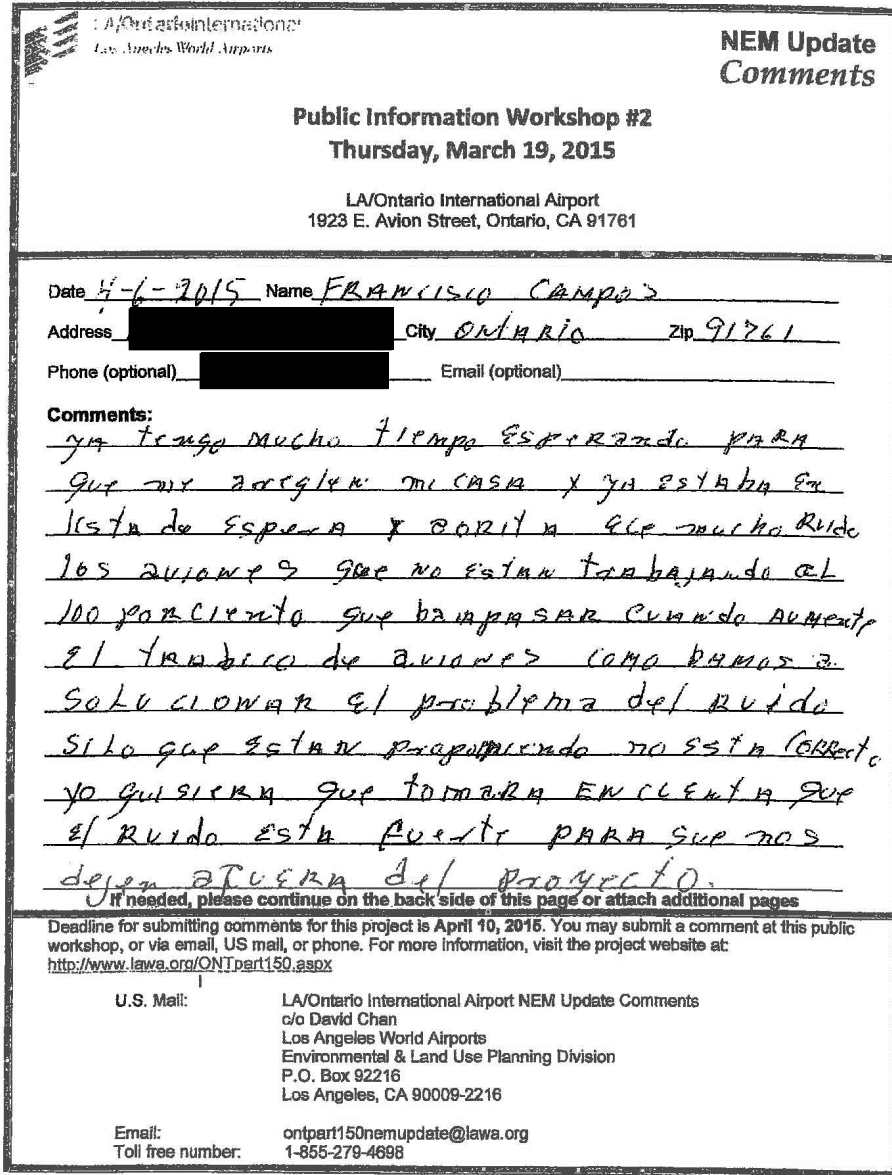 LA/Ontario International
Los Angeles World Airports
NEM Update
Comments
Public Information Workshop #2
Thursday, March 19, 2015
LA/Ontario International Airport
1923 E. Avion Street, Ontario, CA 91761
Date 4-6-2015 Name FRANCISCO CAMPOS
Address City ONTARIO Zip 91761
Phone (optional) Email (optional)
Comments:
YA tengo mucho tiempo EspeRando PARA
que me areglen mi CASA y ya estaba En
lista de Espera y aorita ace mucho Ruido
los aviones que no Estan trabajando al
100 porciento que ba apasar cuando Aumente
El trabico de aviones como bamos a
SoLucionar El problema del Ruido
Si lo que Estan proponiendo no Esta CORRecto
yo quisiera que tomara EN cuenta que
El Ruido Esta fuerte PARA que nos
dejen afuera del proyecto.
If needed, please continue on the back side of this page or attach additional pages
Deadline for submitting comments for this project is April 10, 2015. You may submit a comment at this public
workshop, or via email, US mail, or phone. For more information, visit the project website at:
http://www.lawa.org/ONTpart150.aspx
U.S. Mail: LA/Ontario International Airport NEM Update Comments
c/o David Chan
Los Angeles World Airports
Environmental & Land Use Planning Division
P.O. Box 92216
Los Angeles, CA 90009-2216
Email: ontpart150nemupdate@lawa.org
Toll free number: 1-855-279-4698